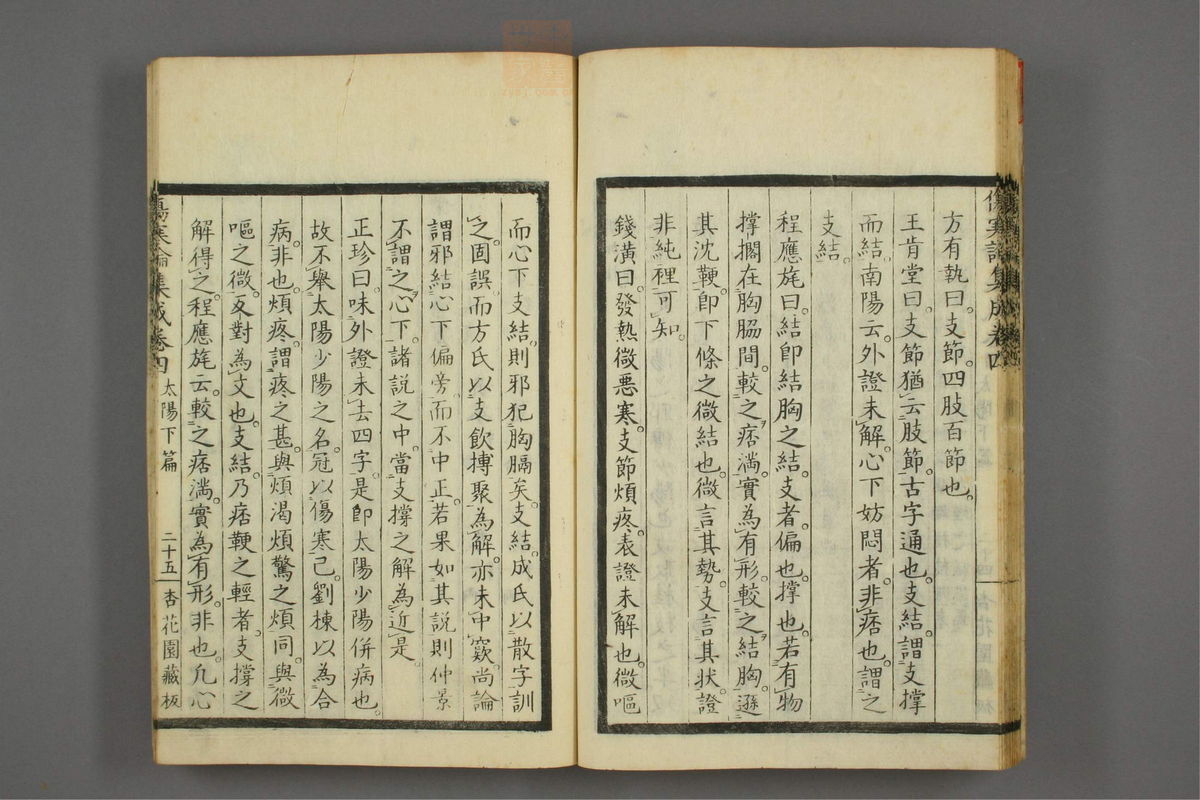 傷寒論集成卷四
方有執曰。支節。四肢百節也。
王肯堂曰。支節猶云肢節。古字通也。支結。謂支撐
而結。南陽云。外證未解。心下妨悶者。非痞也。謂之
支結。
程應旄曰。結卽結胸之結。支者偏也。撐也。若有物
撐擱在胸脇間。較之痞滿。實為有形。較之結胸。遜
其沈鞕。卽下條之微結也。微言其勢。支言其状。證
非純裡可知。
錢潢曰。發熱微悪寒。支節煩疼。表證未解也。微嘔
而心下支結。則邪犯胸膈矣。支結。成氏以散字訓
之。固誤。而方氏以支飲摶聚為解。亦未中窽。尚論
謂邪結心下偏旁。而不中正。若果如其說則仲景
不謂之心下。諸説之中。當支撐之解為近是。
正珍曰。味外證未去四字。是卽太陽少陽併病也。
故不舉太陽少陽之名。冠以傷寒已。劉棟以為合
病。非也。煩疼。謂疼之甚。與煩渴煩驚之煩同。與微
嘔之微。反對為文也。支結乃痞鞕之輕者。支撐之
解得之。程應旄云。較之痞滿。實為有形。非也。凡心
傷寒論集成卷四 太陽下篇 二十五 杏花園藏板